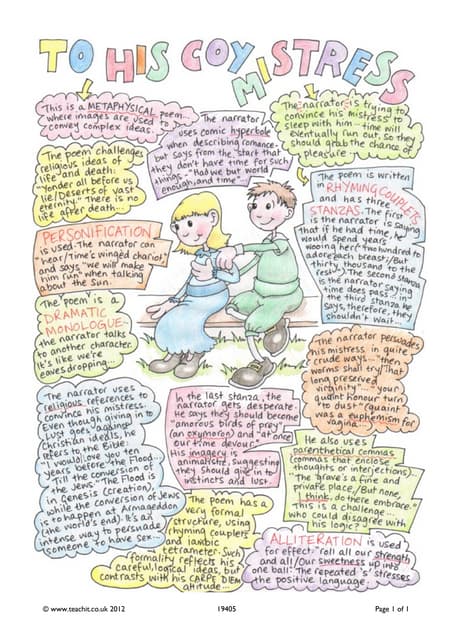 TO HIS COY MISTRESS
This is a METAPHYSICAL poem...
where images are used to
convey complex ideas.
The narrator
uses comic hyperbole
when describing romance-
but says from the start that
they don't have time for such
things - "Had we but world
enough, and time"...
The narrator is trying to
convince his mistress to
sleep with him... time will
eventually run out, so they
should grab the chance of
pleasure...
The poem challenges
religious ideas of
life and death:
"Yonder all before us
lie/Deserts of vast
eternity." There is no
life after death...
The poem is written
in RHYMING COUPLETS
and has three
STANZAS. The first
is the narrator is saying
that if he had time he
would spend years
wooing her ("two hundred to
adore each breast:/But
thirty thousand to the
rest"). The second stanza
is the narrator saying
time does pass... in
the third stanza he
says, therefore, they
shouldn't wait...
PERSONIFICATION
is used. The narrator can
"hear/Time's winged chariot"
and says "we will make
him run" when talking
about the Sun.
The poem is a
DRAMATIC
MONOLOGUE-
the narrator talks
to another character.
It's like we're
eavesdropping...
The narrator persuades
his mistress in quite
crude ways... "then
worms shall try/That
long preserved
virginity"... "your
quaint honour turn
to dust" (quaint
is a euphemism for
vagina...
The narrator uses
religious references to
convince his mistress.
Even though giving in to
lust goes against
Christian ideals, he
refers to the Bible:
"I would/Love you ten
years before the Flood...
Till the conversion of
the Jews." The Flood is
in Genesis (creation),
while the conversion of Jews
is to happen at Armageddon
(the world's end). It's an
intense way to persuade
someone to have sex...
In the last stanza, the
narrator gets desperate.
He says they should become
"amorous birds of prey"
(an oxymoron) and "at once
our time devour."
His imagery is
animalistic, suggesting
they should give in to
instincts and lust.
He also uses
parenthetical commas
(commas that enclose
thoughts or interjections)...
"The grave's a fine and
private place,/But none,
I think, do there embrace."
This is a challenge -
who could disagree with
his logic?
The poem has a
very formal
structure, using
rhyming couplets
and iambic
tetrameter. Such
formality reflects his
careful, logical ideas, but
contrasts with his CARPE DIEM
attitude...
ALLITERATION is used
for effect: "roll all our strength
and all/Our sweetness up into
one ball". The repeated 's' stresses
the positive language.
© www.teachit.co.uk 2012
19405
Page 1 of 1